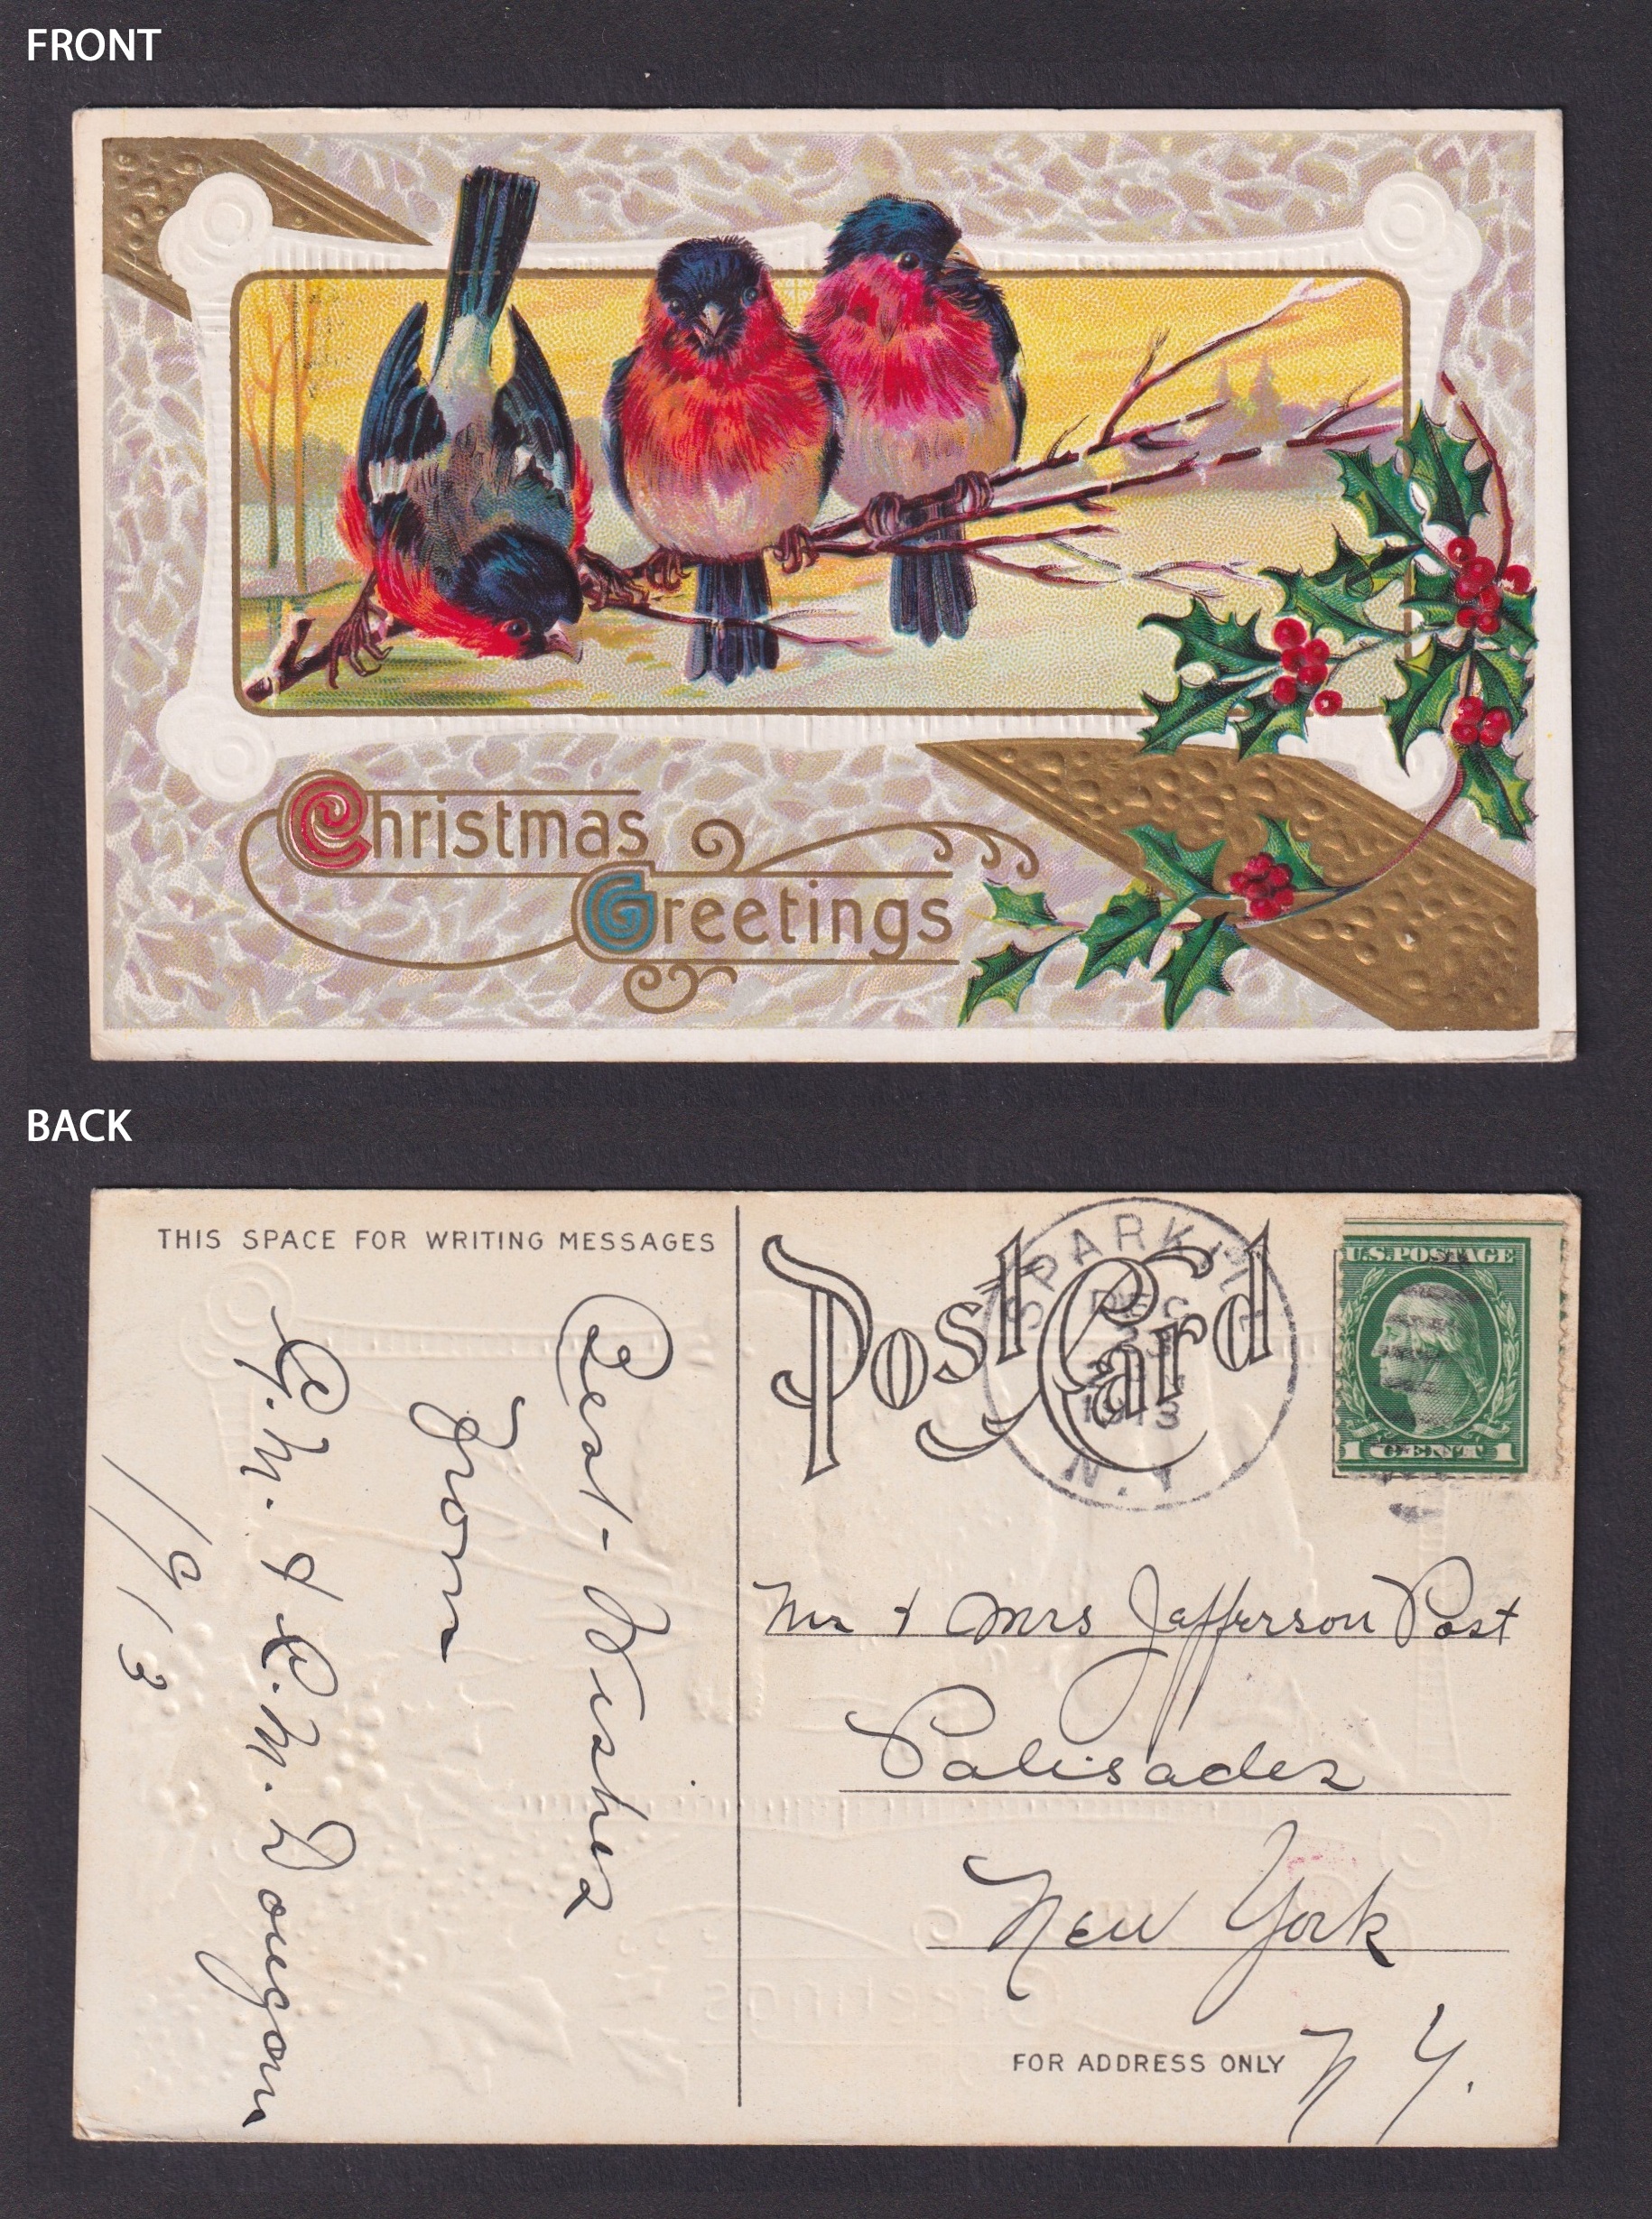 FRONT
Christmas
Greetings
BACK
THIS SPACE FOR WRITING MESSAGES
Best-Wishes
From
G. N. & C. N. Dongan
1913
Post Card
SPARKILL
DEC
23
1913
N.Y.
U.S. POSTAGE
1 CENT 1
Mr & Mrs Jefferson Post
Palisades
New York
FOR ADDRESS ONLY
N Y.